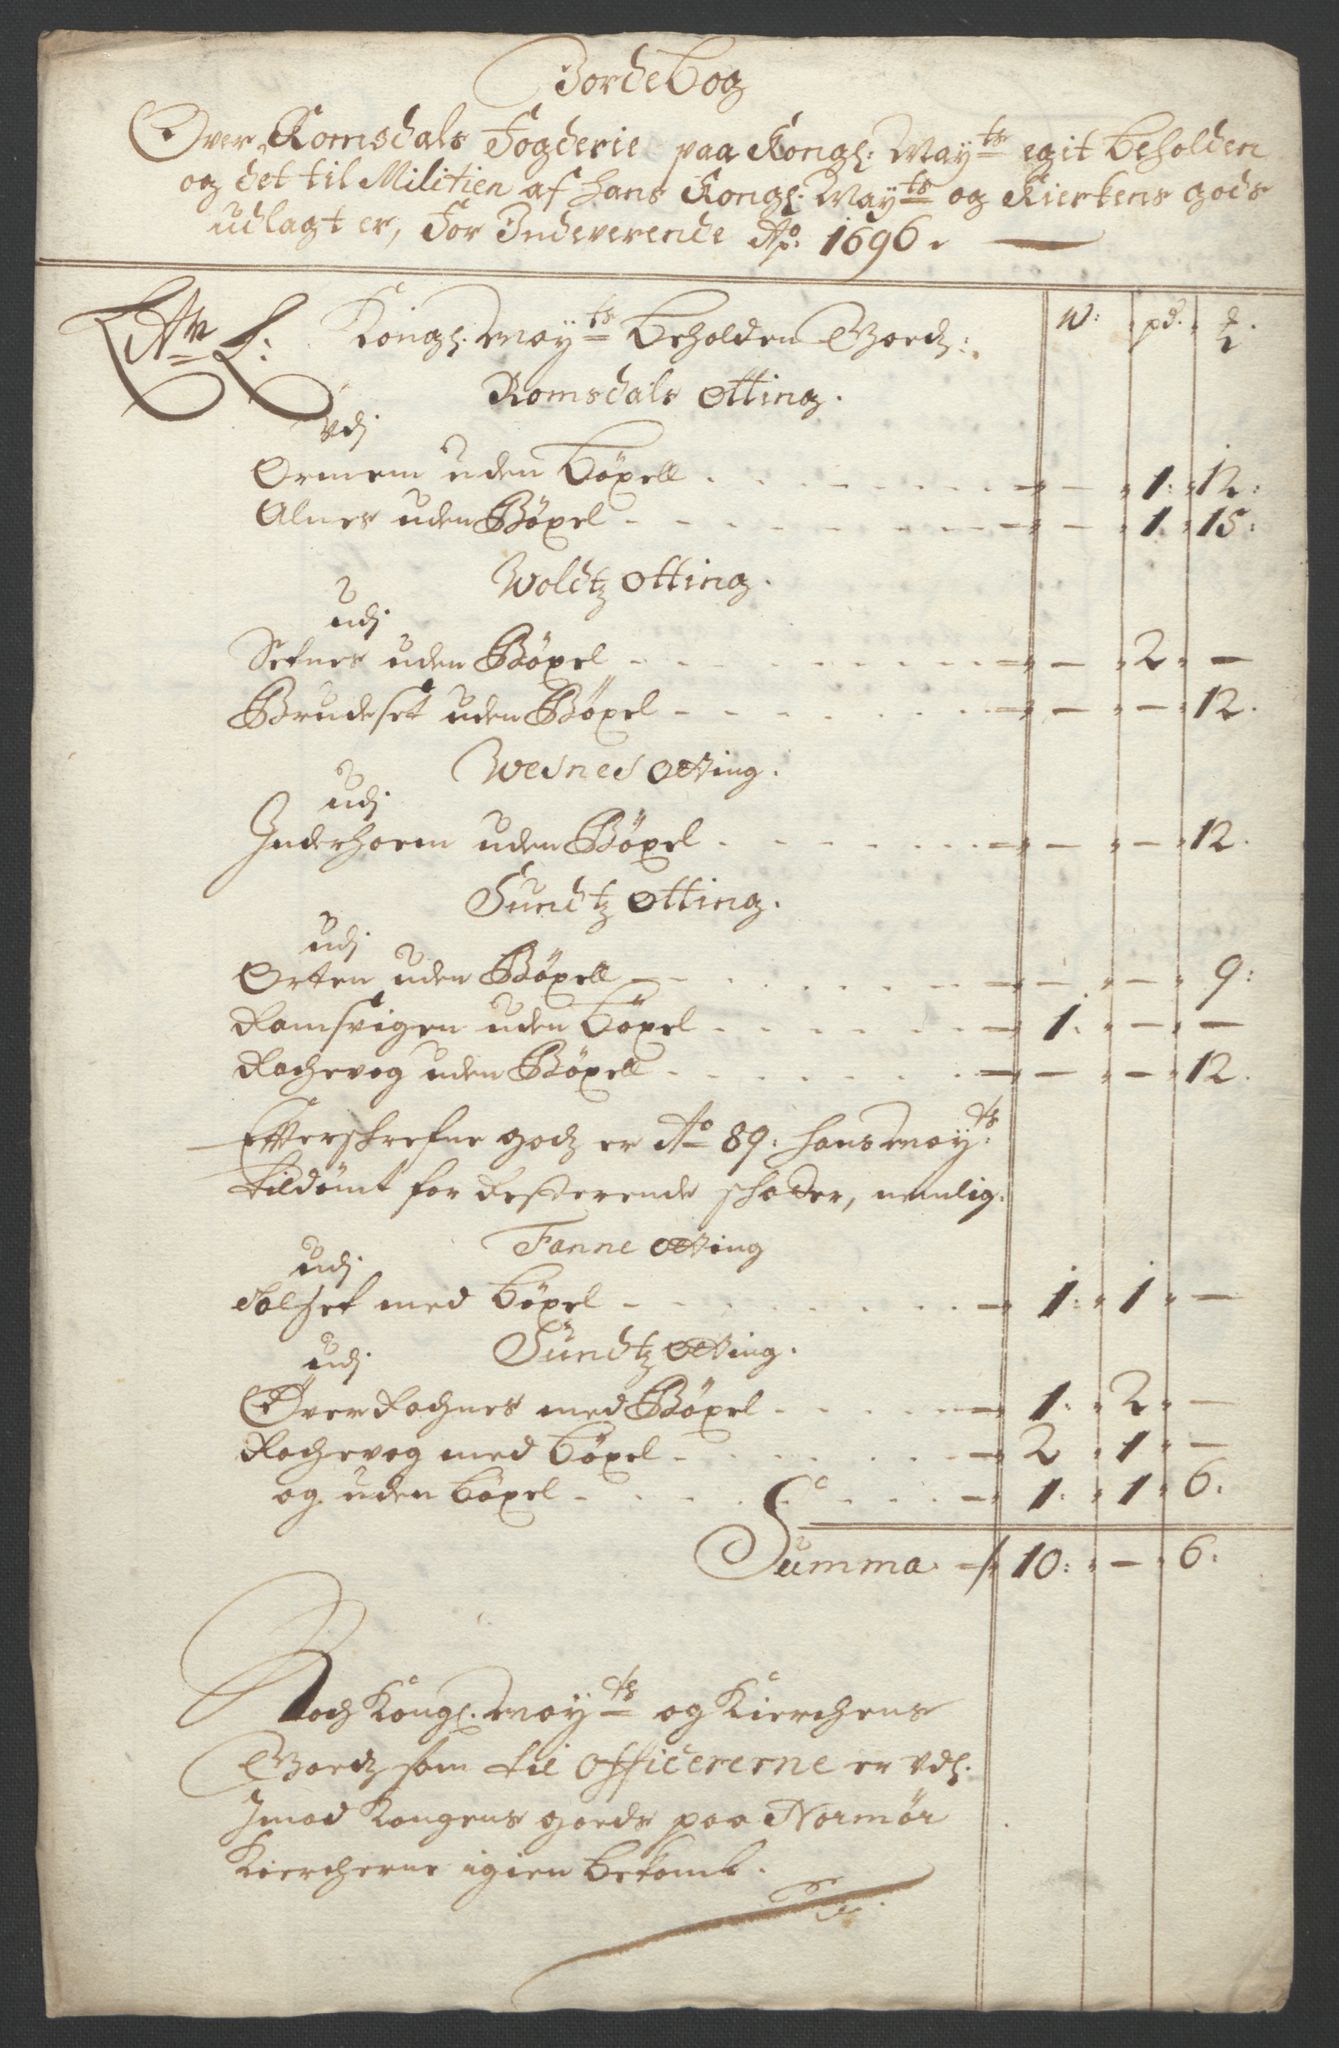 Jordebog
Over Romsdals Fogderie paa Kongl: Mayts egit beholden
og det til Militien af hans Kongl: Mayts og Kierkens gods
udlagt er, For Indeverende Ao: 1696.
Litr L: Kongl: Mayts beholden Goedz: W: pd: ℔
Romsdals otting.
Vdj
Ormem uden böxell - 1: 12:
Alnes uden Böxel - 1: 15:
Woldtz otting.
udj
Sefnes uden Böxel - 2: -
Brudeset uden Böxel - - 12.
Wesnes otting.
udj
Inderhoem uden Böxel - - 12.
Sundtz otting.
udj
Orten uden Böxell - - 9:
Ramsvigen uden böxel 1: - -
Rochevog uden Böxell - - 12.
Efterschrefne godz er Ao 89: hans Mayts:
tildömt for Resterende schatter, nemlig:
Fanne otting
udj
Solset med böxel 1: 1: -
Sundtz otting.
udj
Över Rochnes med Böxel 1: 2: -
Rochevog med böxel 2 1: -
og uden böxel 1: 1: 6:
Summa 10: - 6:
Noch Kongl: Mayts og Kierchens
Goedz som til Officererne er vdl:
Imod Kongens goeds paa Normör
Kiercherne igien bekomb.